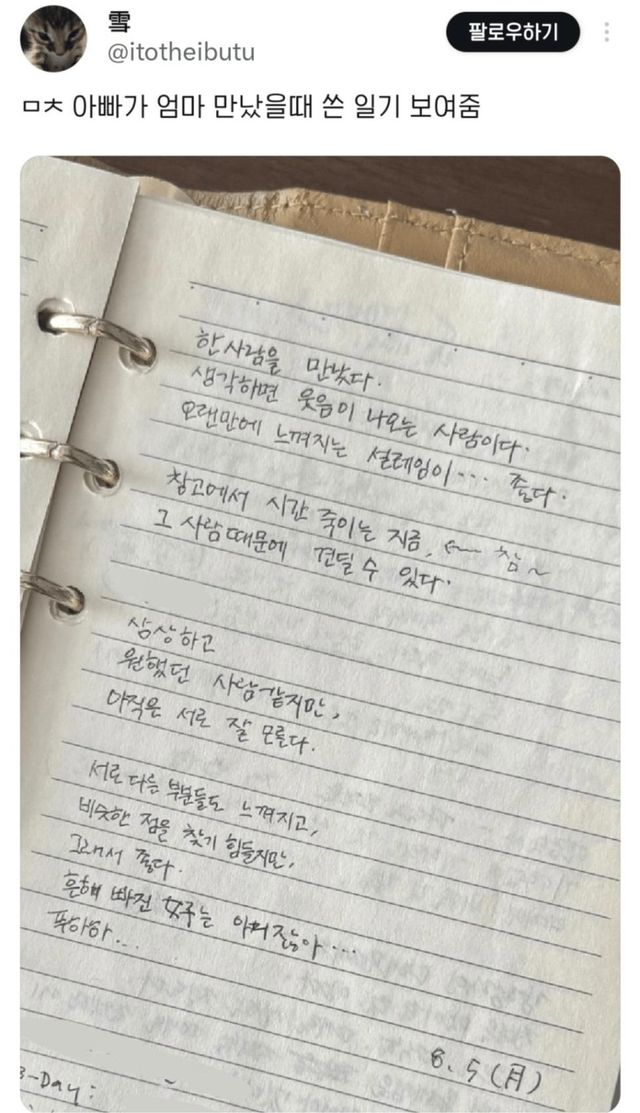 雪
@itotheibutu
팔로우하기
ㅁㅊ 아빠가 엄마 만났을때 쓴 일기 보여줌
한사람을 만났다.
생각하면 웃음이 나오는 사람이다.
오랜만에 느껴지는 설레임이... 좋다.
창고에서 시간 죽이는 지금, ← 참~
그 사람때문에 견딜 수 있다.
상상하고
원했던 사람같지만,
아직은 서로 잘 모른다.
서로 다른 부분들도 느껴지고,
비슷한 점을 찾기 힘들지만,
그래서 좋다.
흔해 빠진 女구는 아니잖아...
푸하하...
8. 5 (月)
3-Day: